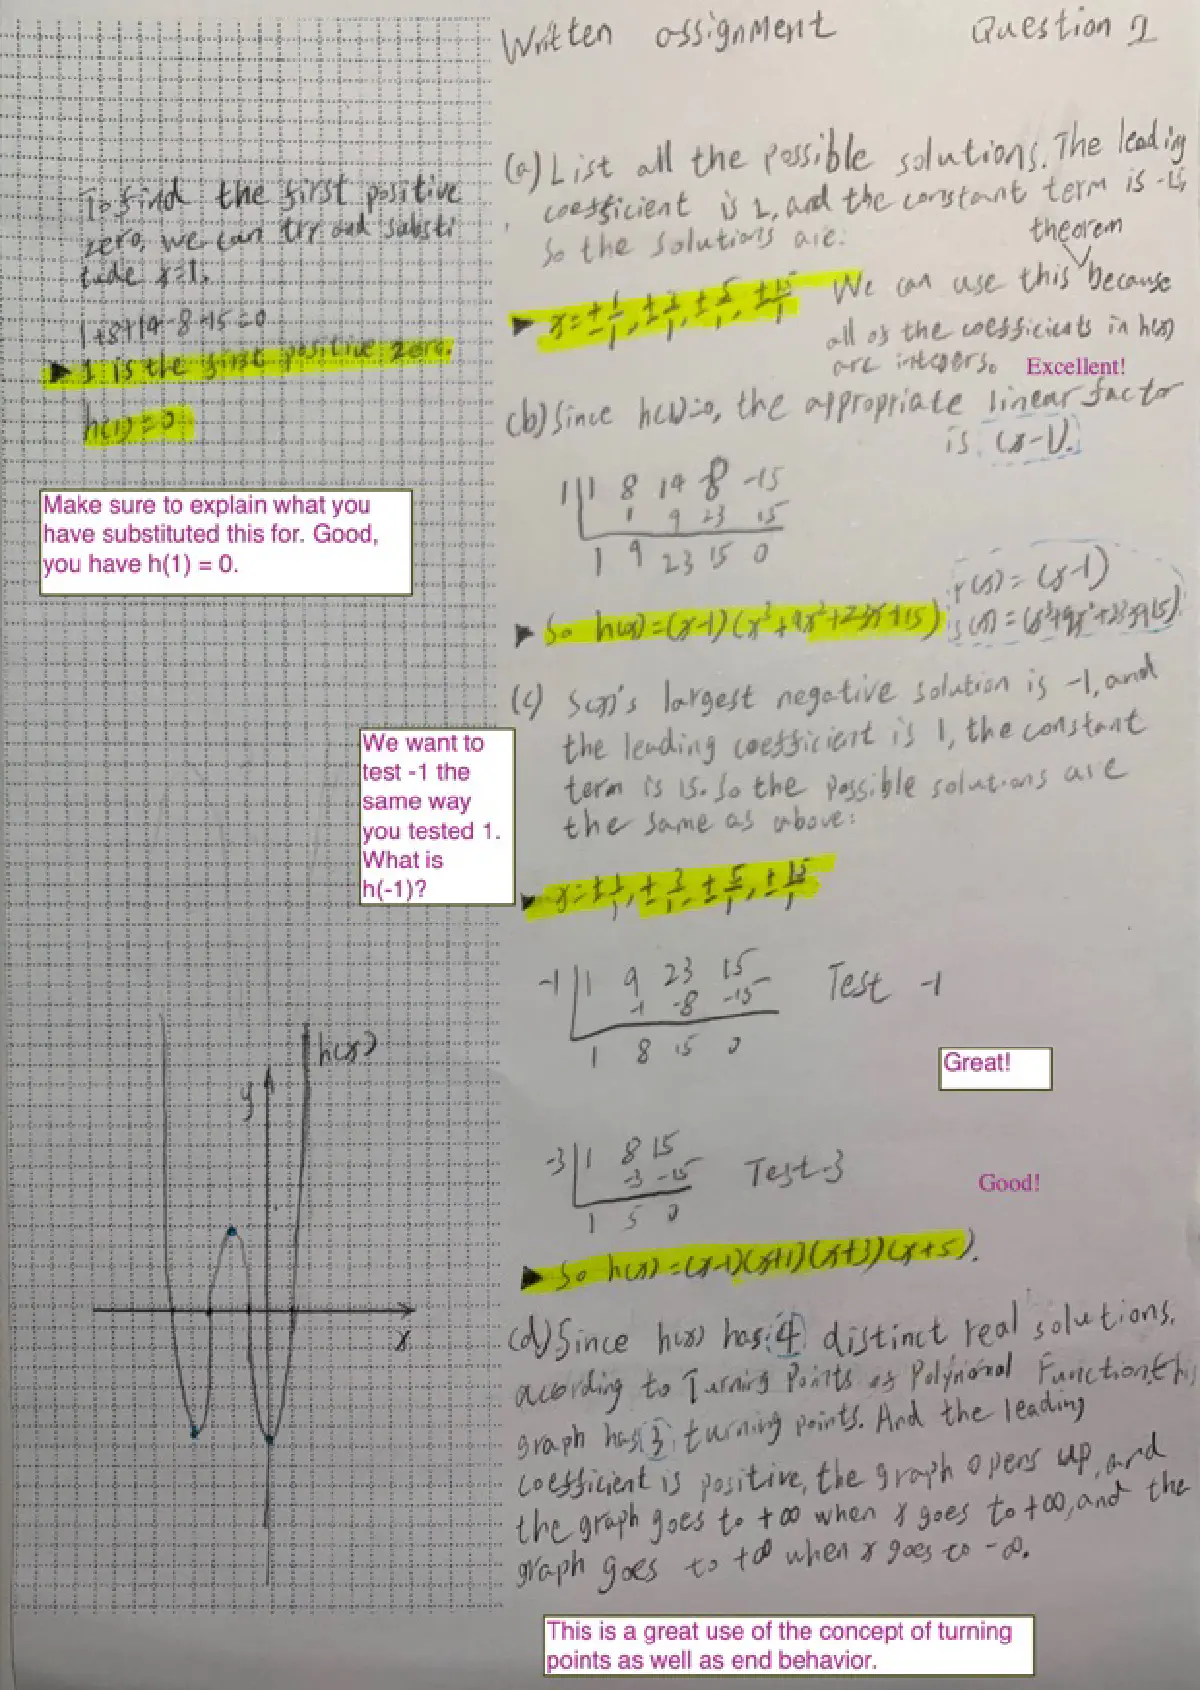 Written assignment Question 1
To find the first positive
zero, we can try and substi
tude x=1.
1+8+14-8-15=0
▶ 1 is the first positive zero.
h(1)=0
Make sure to explain what you
have substituted this for. Good,
you have h(1) = 0.
(a) List all the possible solutions. The leading
coefficient is 1, and the constant term is -15,
so the solutions are:
theorem
▶ x=±1/1, ±3/1, ±5/1, ±15/1 We can use this because
all of the coefficients in h(x)
are integers.
Excellent!
(b) Since h(1)=0, the appropriate linear factor
is (x-1).
1 | 1 8 14 8 -15
1 9 23 15
1 9 23 15 0
r(x) = (x-1)
▶ So h(x)=(x-1)(x³+9x²+23x+15) s(x) = (x³+9x²+23x+15)
(c) S(x)'s largest negative solution is -1, and
the leading coefficient is 1, the constant
term is 15. So the possible solutions are
the same as above:
We want to
test -1 the
same way
you tested 1.
What is
h(-1)?
▶ x=±1/1, ±3/1, ±5/1, ±15/1
-1 | 1 9 23 15 Test -1
-1 -8 -15
1 8 15 0
Great!
-3 | 1 8 15 Test -3
-3 -15
1 5 0
Good!
▶ So h(x)=(x-1)(x+1)(x+3)(x+5).
h(x)
y
x
(d) Since h(x) has 4 distinct real solutions,
according to Turning Points of Polynomial Function, this
graph has 3 turning points. And the leading
coefficient is positive, the graph opens up, and
the graph goes to +∞ when x goes to +∞, and the
graph goes to +∞ when x goes to -∞.
This is a great use of the concept of turning
points as well as end behavior.